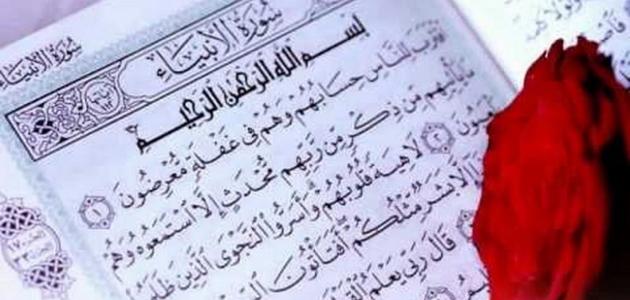 سُورَةُ الأَنبِيَاء
سُورَةُ الأَنبِيَاء
بِسْمِ اللَّهِ الرَّحْمَٰنِ الرَّحِيمِ
ٱقْتَرَبَ لِلنَّاسِ حِسَابُهُمْ وَهُمْ فِى غَفْلَةٍ مُّعْرِضُونَ ١
يَأْتِيهِم مِّن ذِكْرٍ مِّن رَّبِّهِم مُّحْدَثٍ إِلَّا ٱسْتَمَعُوهُ وَهُمْ
٢ لَاهِيَةً قُلُوبُهُمْ وَأَسَرُّوا۟ ٱلنَّجْوَى ٱلَّذِينَ
إِلَّا بَشَرٌ مِّثْلُكُمْ أَفَتَأْتُونَ
قَالَ رَبِّى يَعْلَمُ